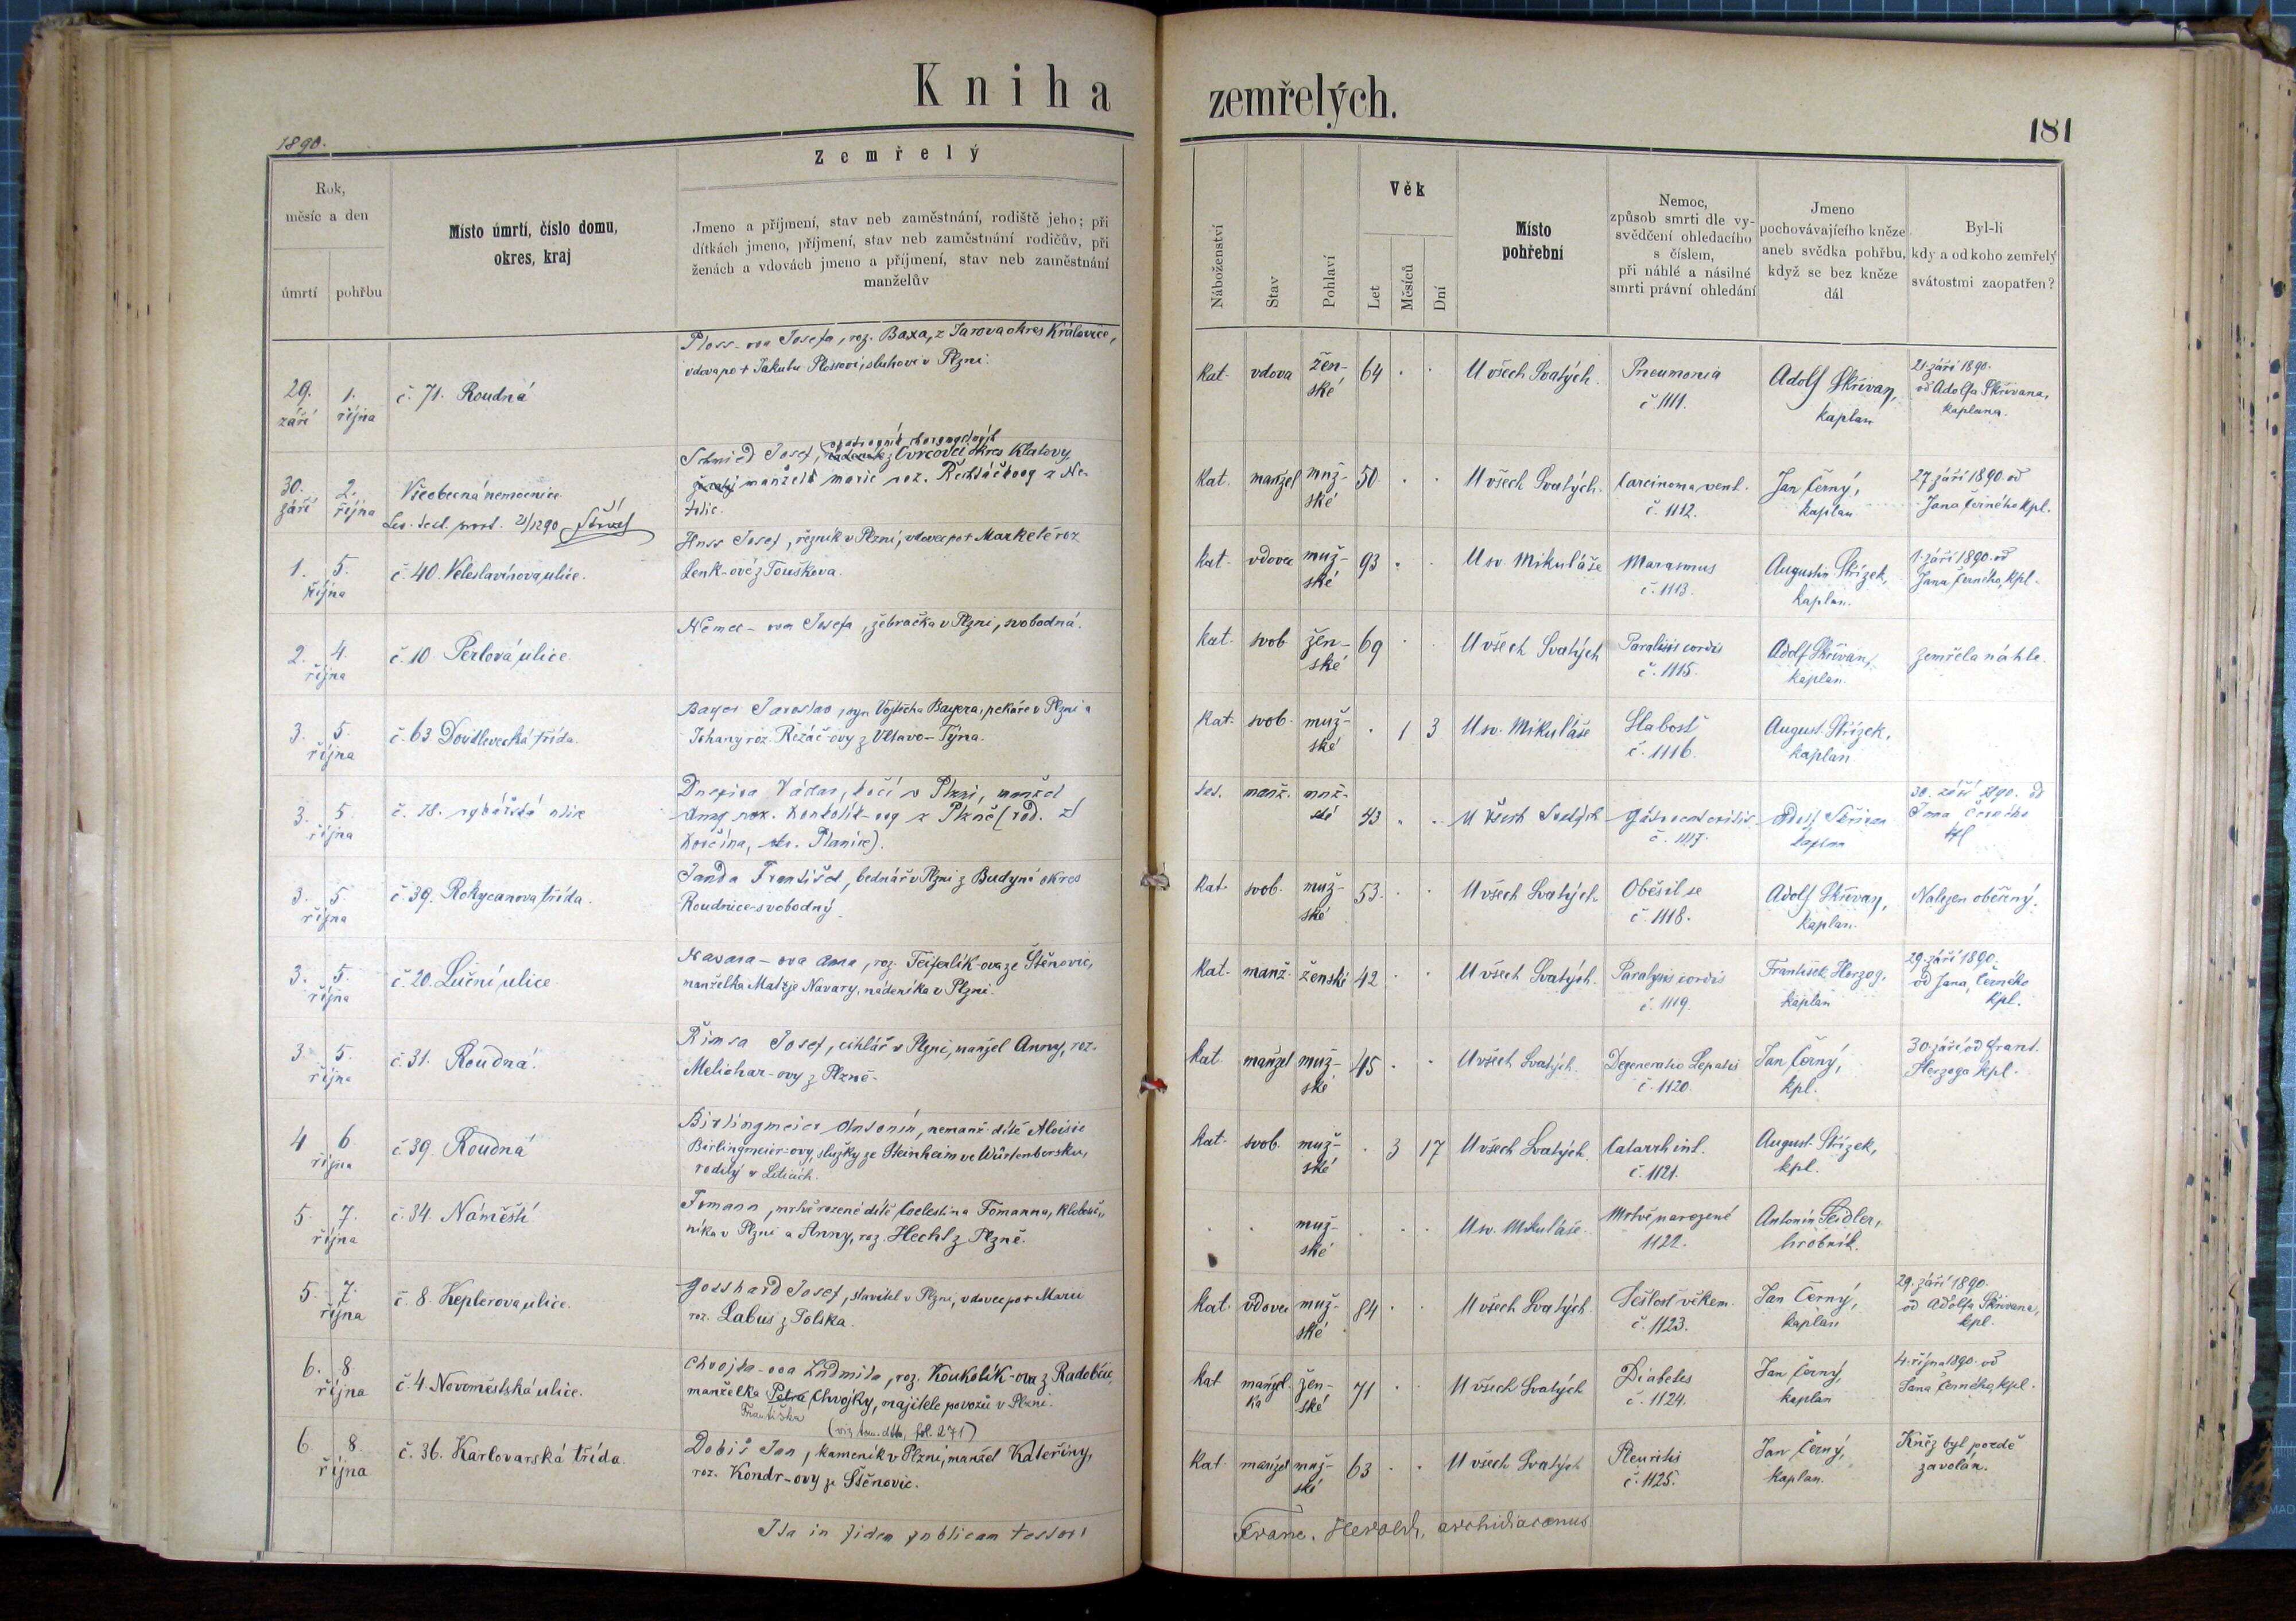 Kniha zemřelých.
181
1890.
Rok,
měsíc a den
úmrtí
pohřbu
Místo úmrtí, číslo domu,
okres, kraj
Zemřelý
Jmeno a příjmení, stav neb zaměstnání, rodiště jeho; při
dítkách jmeno, příjmení, stav neb zaměstnání rodičův, při
ženách a vdovách jmeno a příjmení, stav neb zaměstnání
manželův
Náboženství
Stav
Pohlaví
Věk
Let
Měsíců
Dní
Místo
pohřební
Nemoc,
způsob smrti dle vy-
svědčení ohledacího
s číslem,
při náhlé a násilné
smrti právní ohledání
Jmeno
pochovávajícího kněze
aneb svědka pohřbu,
když se bez kněze
dál
Byl-li
kdy a od koho zemřelý
svátostmi zaopatřen?
29. září
1. října
č. 71. Roudná
Ploss-ova Josefa, roz. Baxa, z Jarova okres Královice,
vdova po + Jakubu Plossovi, sluhovi v Plzni.
Kat. vdova žen-ské 64 . .
U všech Svatých.
Pneumonia
č. 1111.
Adolf Skřivan,
kaplan
21. září 1890.
od Adolfa Skřivana,
kaplana.
30. září
2. října
Všeobecná nemocnice.
Schmied Josef, z Čvrčovci okres Klatovy,
manžel Marie roz.
Kat. manžel muž-ské 50 . .
U všech Svatých.
Carcinoma vent.
č. 1112.
Jan Černý,
kaplan
27. září 1890. od
Jana Černého kpl.
1. 5.
října
č. 40. Veleslavínova ulice.
Huss Josef, řezník v Plzni, vdovec po + Marketě roz
Lenk-ové z Touškova.
Kat. vdovec muž-ské 93 . .
U sv. Mikuláše
Marasmus
č. 1113.
Augustin Střízek,
kaplan.
1. září 1890. od
Jana Černého, kpl.
2. 4.
října
č. 10. Perlová ulice.
Němec-ova Josefa, žebračka v Plzni, svobodná.
Kat. svob žen-ské 69 . .
U všech Svatých
Paralisis cordis
č. 1115.
Adolf Skřivan,
kaplan.
zemřela náhle.
3. 5.
října
č. 63. Doudlevecká třída.
Bayer Jaroslav, syn Vojtěcha Bayera, pekaře v Plzni a
Johany roz. Řezáč-ovy z Vltavo-Týna.
Kat. svob. muž-ské . 1 3
U sv. Mikuláše
Slabost
č. 1116.
August. Střízek,
kaplan
3. 5.
října
č. 18. rybářská ulice
Václav, kočí v Plzni, manžel
Anny roz. Koukolík-ovy z Plzně (rod. z
Kovčína, okr. Planice).
manž. muž-ské 43 . .
U všech Svatých
Gastroenteritis
č. 1117.
Adolf Skřivan
kaplan
30. září 1890. od
Jana Černého
kpl
3. 5.
října
č. 39. Rokycanova třída.
Janda František, bednář v Plzni z Budyně okres
Roudnice-svobodný.
Kat. svob. muž-ské 53. . .
U všech Svatých.
Oběsil se
č. 1118.
Adolf Skřivan,
kaplan.
Nalezen oběšený.
3. 5.
října
č. 20. Luční ulice
Navara-ova Anna, roz. Teiferlík-ova ze Štěnovic,
manželka Matěje Navary, nádeníka v Plzni.
Kat. manž. ženské 42 . .
U všech Svatých.
Paralysis cordis
č. 1119.
František Herzog,
kaplan
29. září 1890.
od Jana Černého
kpl.
3. 5.
října
č. 31. Roudná.
Řimsa Josef, cihlář v Plzni, manžel Anny, roz.
Melichar-ovy z Plzně.
Kat. manžel muž-ské 45 . .
U všech Svatých.
Degeneratio hepatis
č. 1120.
Jan Černý,
kpl.
30. září od Frant.
Herzoga kpl.
4 6
října
č. 39. Roudná
Birlingmeier Antonín, nemanž. dítě Aloisie
Birlingmeier-ovy, služky ze Steinheim ve Würtenbersku,
rodilý v Liticích.
Kat. svob. muž-ské . 3 17
U všech Svatých.
Catarrh int.
č. 1121.
August. Střízek,
kpl.
5. 7.
října
č. 34. Náměstí
Tomann, mrtvě rozené dítě Coelestina Tomanna, klobouč-
níka v Plzni a Anny, roz. Hecht z Plzně.
. . muž-ské . . .
U sv. Mikuláše.
Mrtvě narozené
1122.
Antonín Seidler,
hrobník.
5. 7.
října
č. 8. Keplerova ulice.
Gosshard Josef, stavitel v Plzni, vdovec po + Marii
roz. Labus z Polska.
Kat. vdovec muž-ské 84 . .
U všech Svatých
Sešlost věkem.
č. 1123.
Jan Černý,
kaplan
29. září 1890.
od Adolfa Skřivana,
kpl.
6. 8.
října
č. 4. Novoměstská ulice.
Chvojka-ova Ludmila, roz. Koukolík-ova z Radobčic,
manželka Petra Chvojky, majitele povozů v Plzni.
Františka
(viz tom. dtto, fol. 271)
Kat manžel-ka žen-ské 71 . .
U všech Svatých
Diabetes
č. 1124.
Jan Černý,
kaplan
4. října 1890. od
Jana Černého, kpl.
6. 8.
října
č. 36. Karlovarská třída.
Dobiš Jan, kameník v Plzni, manžel Kateřiny,
roz. Kondr-ovy ze Štěnovic.
Kat. manžel muž-ské 63 . .
U všech Svatých
Pleuritis
č. 1125.
Jan Černý,
kaplan.
Kněz byl pozdě
zavolán.
Ita in fidem publicam testor:
Franc. Herold, archidiaconus.